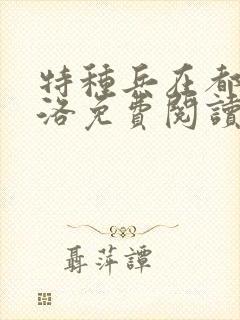 特種兵在都
洛免費閱讀
聶萍譚